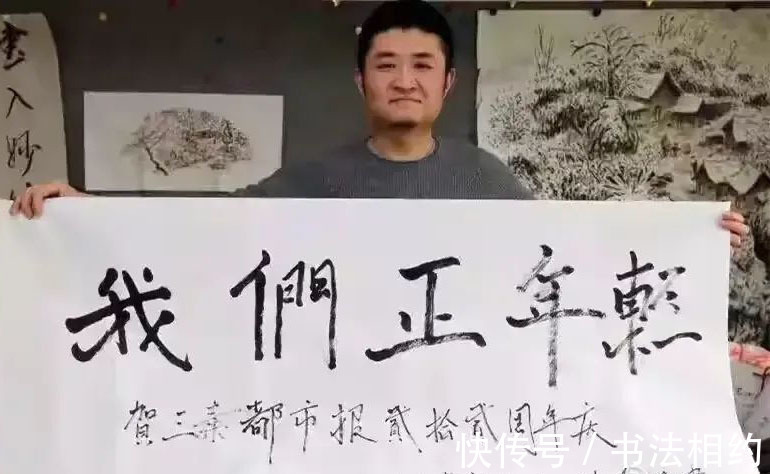 入妙
我們正年輕
賀三秦都市报貳拾貳周年庆
快传号 / 书法相约